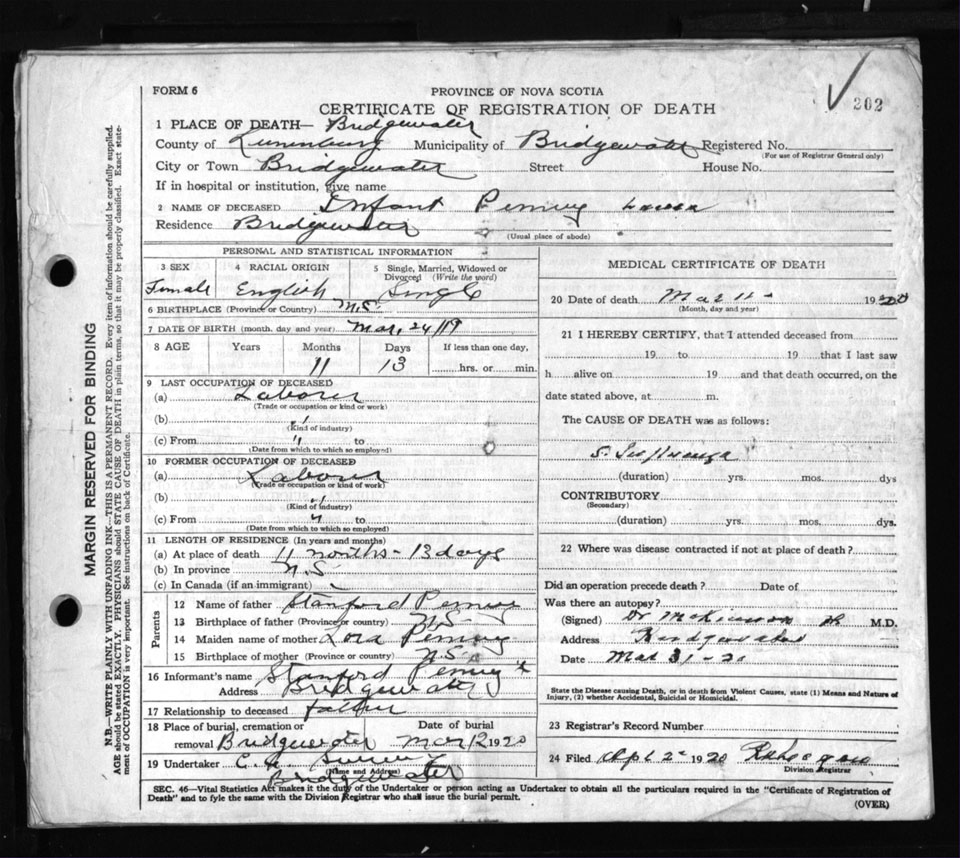 202
FORM 6
PROVINCE OF NOVA SCOTIA
CERTIFICATE OF REGISTRATION OF DEATH
1 PLACE OF DEATH— Bridgewater
County of Lunenburg Municipality of Bridgewater Registered No.
(For use of Registrar General only)
City or Town Bridgewater Street House No.
If in hospital or institution, give name
2 NAME OF DECEASED Infant Penny
Residence Bridgewater
(Usual place of abode)
PERSONAL AND STATISTICAL INFORMATION
3 SEX 4 RACIAL ORIGIN 5 Single, Married, Widowed or Divorced (Write the word)
Female English Single
6 BIRTHPLACE (Province or Country) N.S.
7 DATE OF BIRTH (month, day and year) Mar, 24/19
8 AGE Years Months Days If less than one day,
11 13 hrs. or min.
9 LAST OCCUPATION OF DECEASED
(a) Laborer
(Trade or occupation or kind or work)
(b) "
(Kind of industry)
(c) From " to
(Date from which to which so employed)
10 FORMER OCCUPATION OF DECEASED
(a) Laborer
(Trade or occupation or kind of work)
(b) "
(Kind of industry)
(c) From " to
(Date from which to which so employed)
11 LENGTH OF RESIDENCE (In years and months)
(a) At place of death 11 months - 13 days
(b) In province N.S
(c) In Canada (if an immigrant)
Parents
12 Name of father Stanford Penny
13 Birthplace of father (Province or country) N.S.
14 Maiden name of mother Lora Penny
15 Birthplace of mother (Province or country) N.S.
16 Informant's name Stanford Penny
Address Bridgewater
17 Relationship to deceased father
18 Place of burial, cremation or removal Bridgewater Date of burial Mar 12 1920
19 Undertaker C. H.
(Name and Address)
Bridgewater
MEDICAL CERTIFICATE OF DEATH
20 Date of death Mar 11 - 1920
(Month, day and year)
21 I HEREBY CERTIFY, that I attended deceased from
19 to 19 that I last saw
h alive on 19 and that death occurred, on the
date stated above, at m.
The CAUSE OF DEATH was as follows:
S. Influenza
(duration) yrs. mos. dys
CONTRIBUTORY
(Secondary)
(duration) yrs. mos. dys.
22 Where was disease contracted if not at place of death?
Did an operation precede death? Date of
Was there an autopsy?
(Signed) Dr McKinnon M.D.
Address Bridgewater
Date Mar 31-20
State the Disease causing Death, or in death from Violent Causes, state (1) Means and Nature of
Injury, (2) whether Accidental, Suicidal or Homicidal.
23 Registrar's Record Number
24 Filed Apl 2 1920
Division Registrar
SEC. 46—Vital Statistics Act makes it the duty of the Undertaker or person acting as Undertaker to obtain all the particulars required in the "Certificate of Registration of
Death" and to fyle the same with the Division Registrar who shall issue the burial permit.
(OVER)
MARGIN RESERVED FOR BINDING
N.B.—WRITE PLAINLY WITH UNFADING INK—THIS IS A PERMANENT RECORD. Every item of information should be carefully supplied.
AGE should be stated EXACTLY. PHYSICIANS should STATE CAUSE OF DEATH in plain terms, so that it may be properly classified. Exact state-
ment of OCCUPATION is very important. See instructions on back of Certificate.